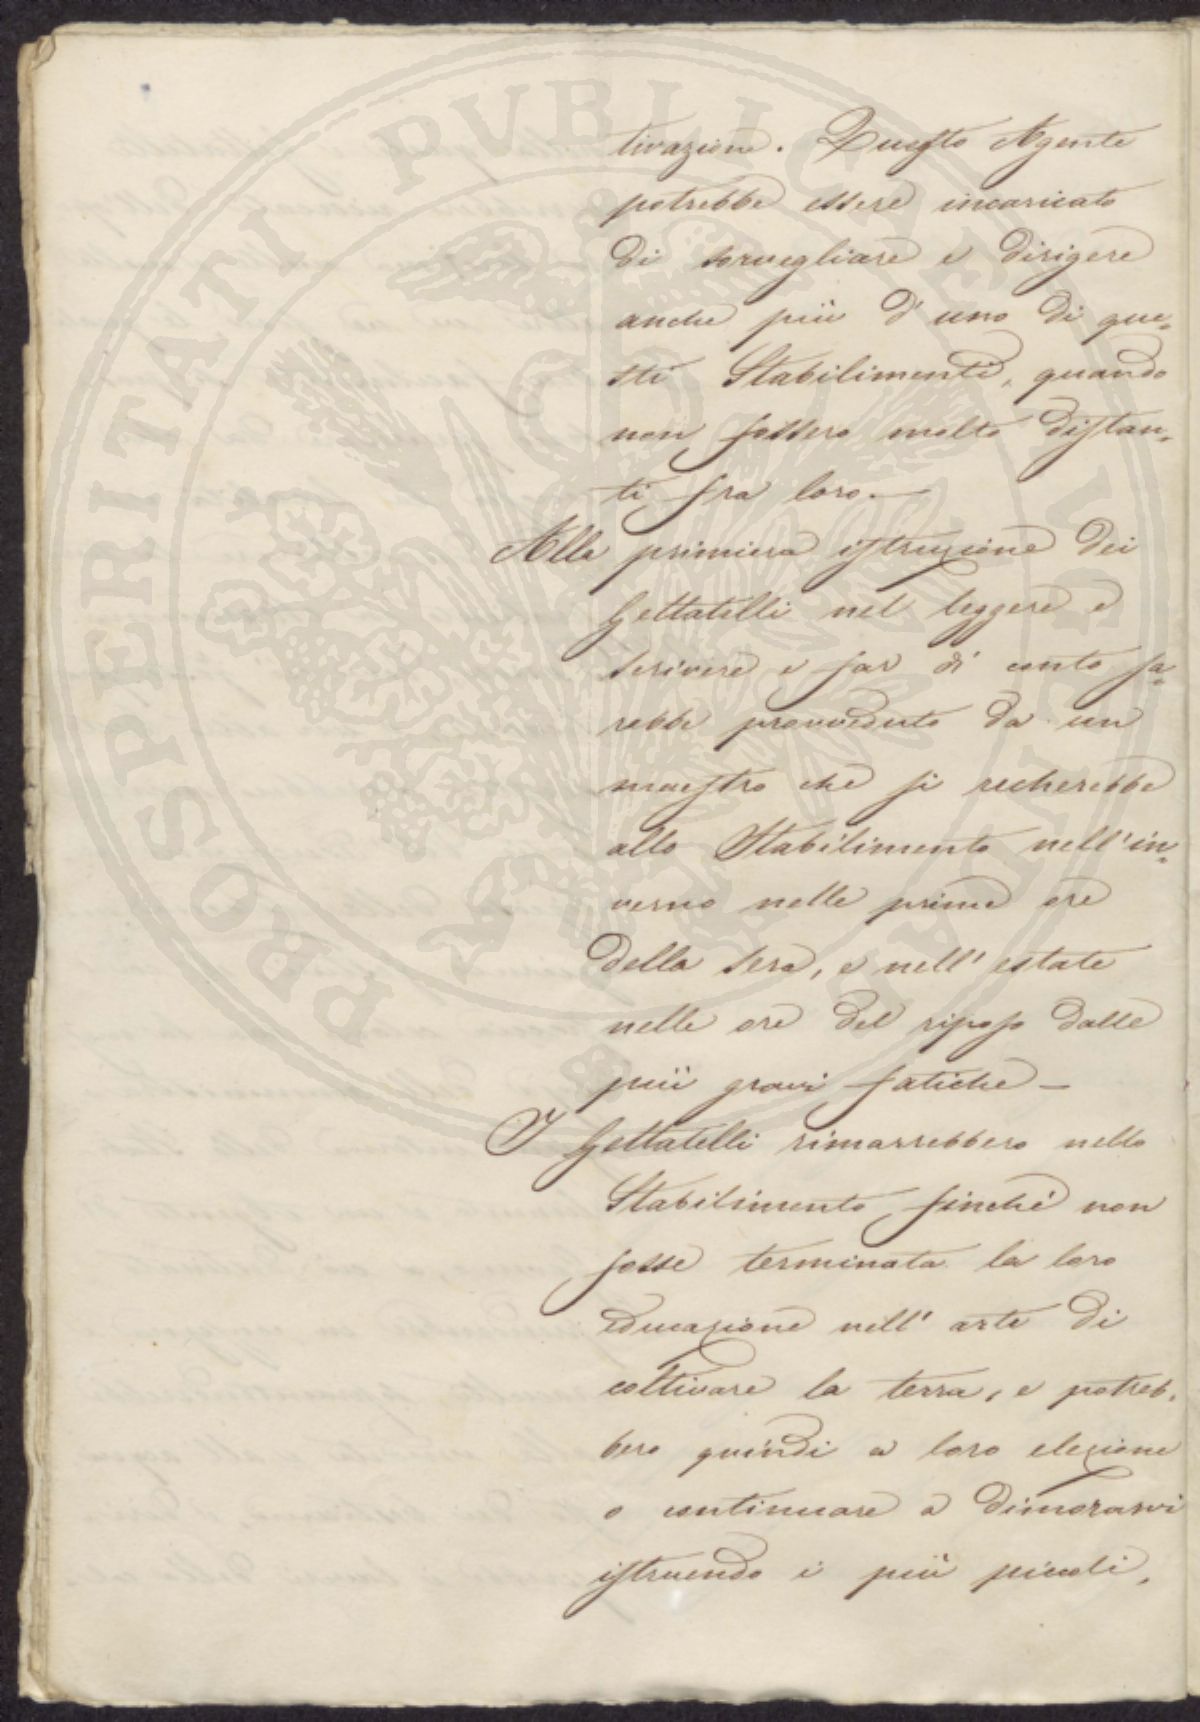 tivazione. Questo Agente
potrebbe essere incaricato
di sorvegliare e dirigere
anche più d'uno di que=
sti Stabilimenti, quando
non fossero molto distan=
ti fra loro.—
Alla primiera istruzione dei
Gettatelli nel leggere e
scrivere e far di conto sa=
rebbe provveduto da un
maestro che si recherebbe
allo Stabilimento nell'in=
verno nelle prime ore
della sera, e nell'estate
nelle ore del riposo dalle
più gravi fatiche—
I Gettatelli rimarrebbero nello
Stabilimento finché non
fosse terminata la loro
educazione nell'arte di
coltivare la terra, e potreb=
bero quindi a loro elezione
o continuare a dimorarvi
istruendo i più piccoli,
PROSPERITATI PVBLICAE AVGENDAE